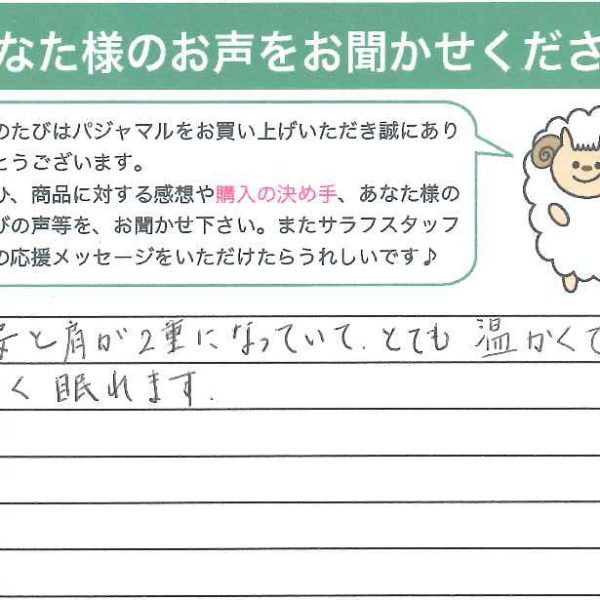 なた様のお声をお聞かせくださ
のたびはパジャマルをお買い上げいただき誠にあり
とうございます。
ひ、商品に対する感想や購入の決め手、あなた様の
びの声等を、お聞かせ下さい。またサラフスタッフ
の応援メッセージをいただけたらうれしいです♪
と肩が2重になっていて、とても温かくて
く眠れます.